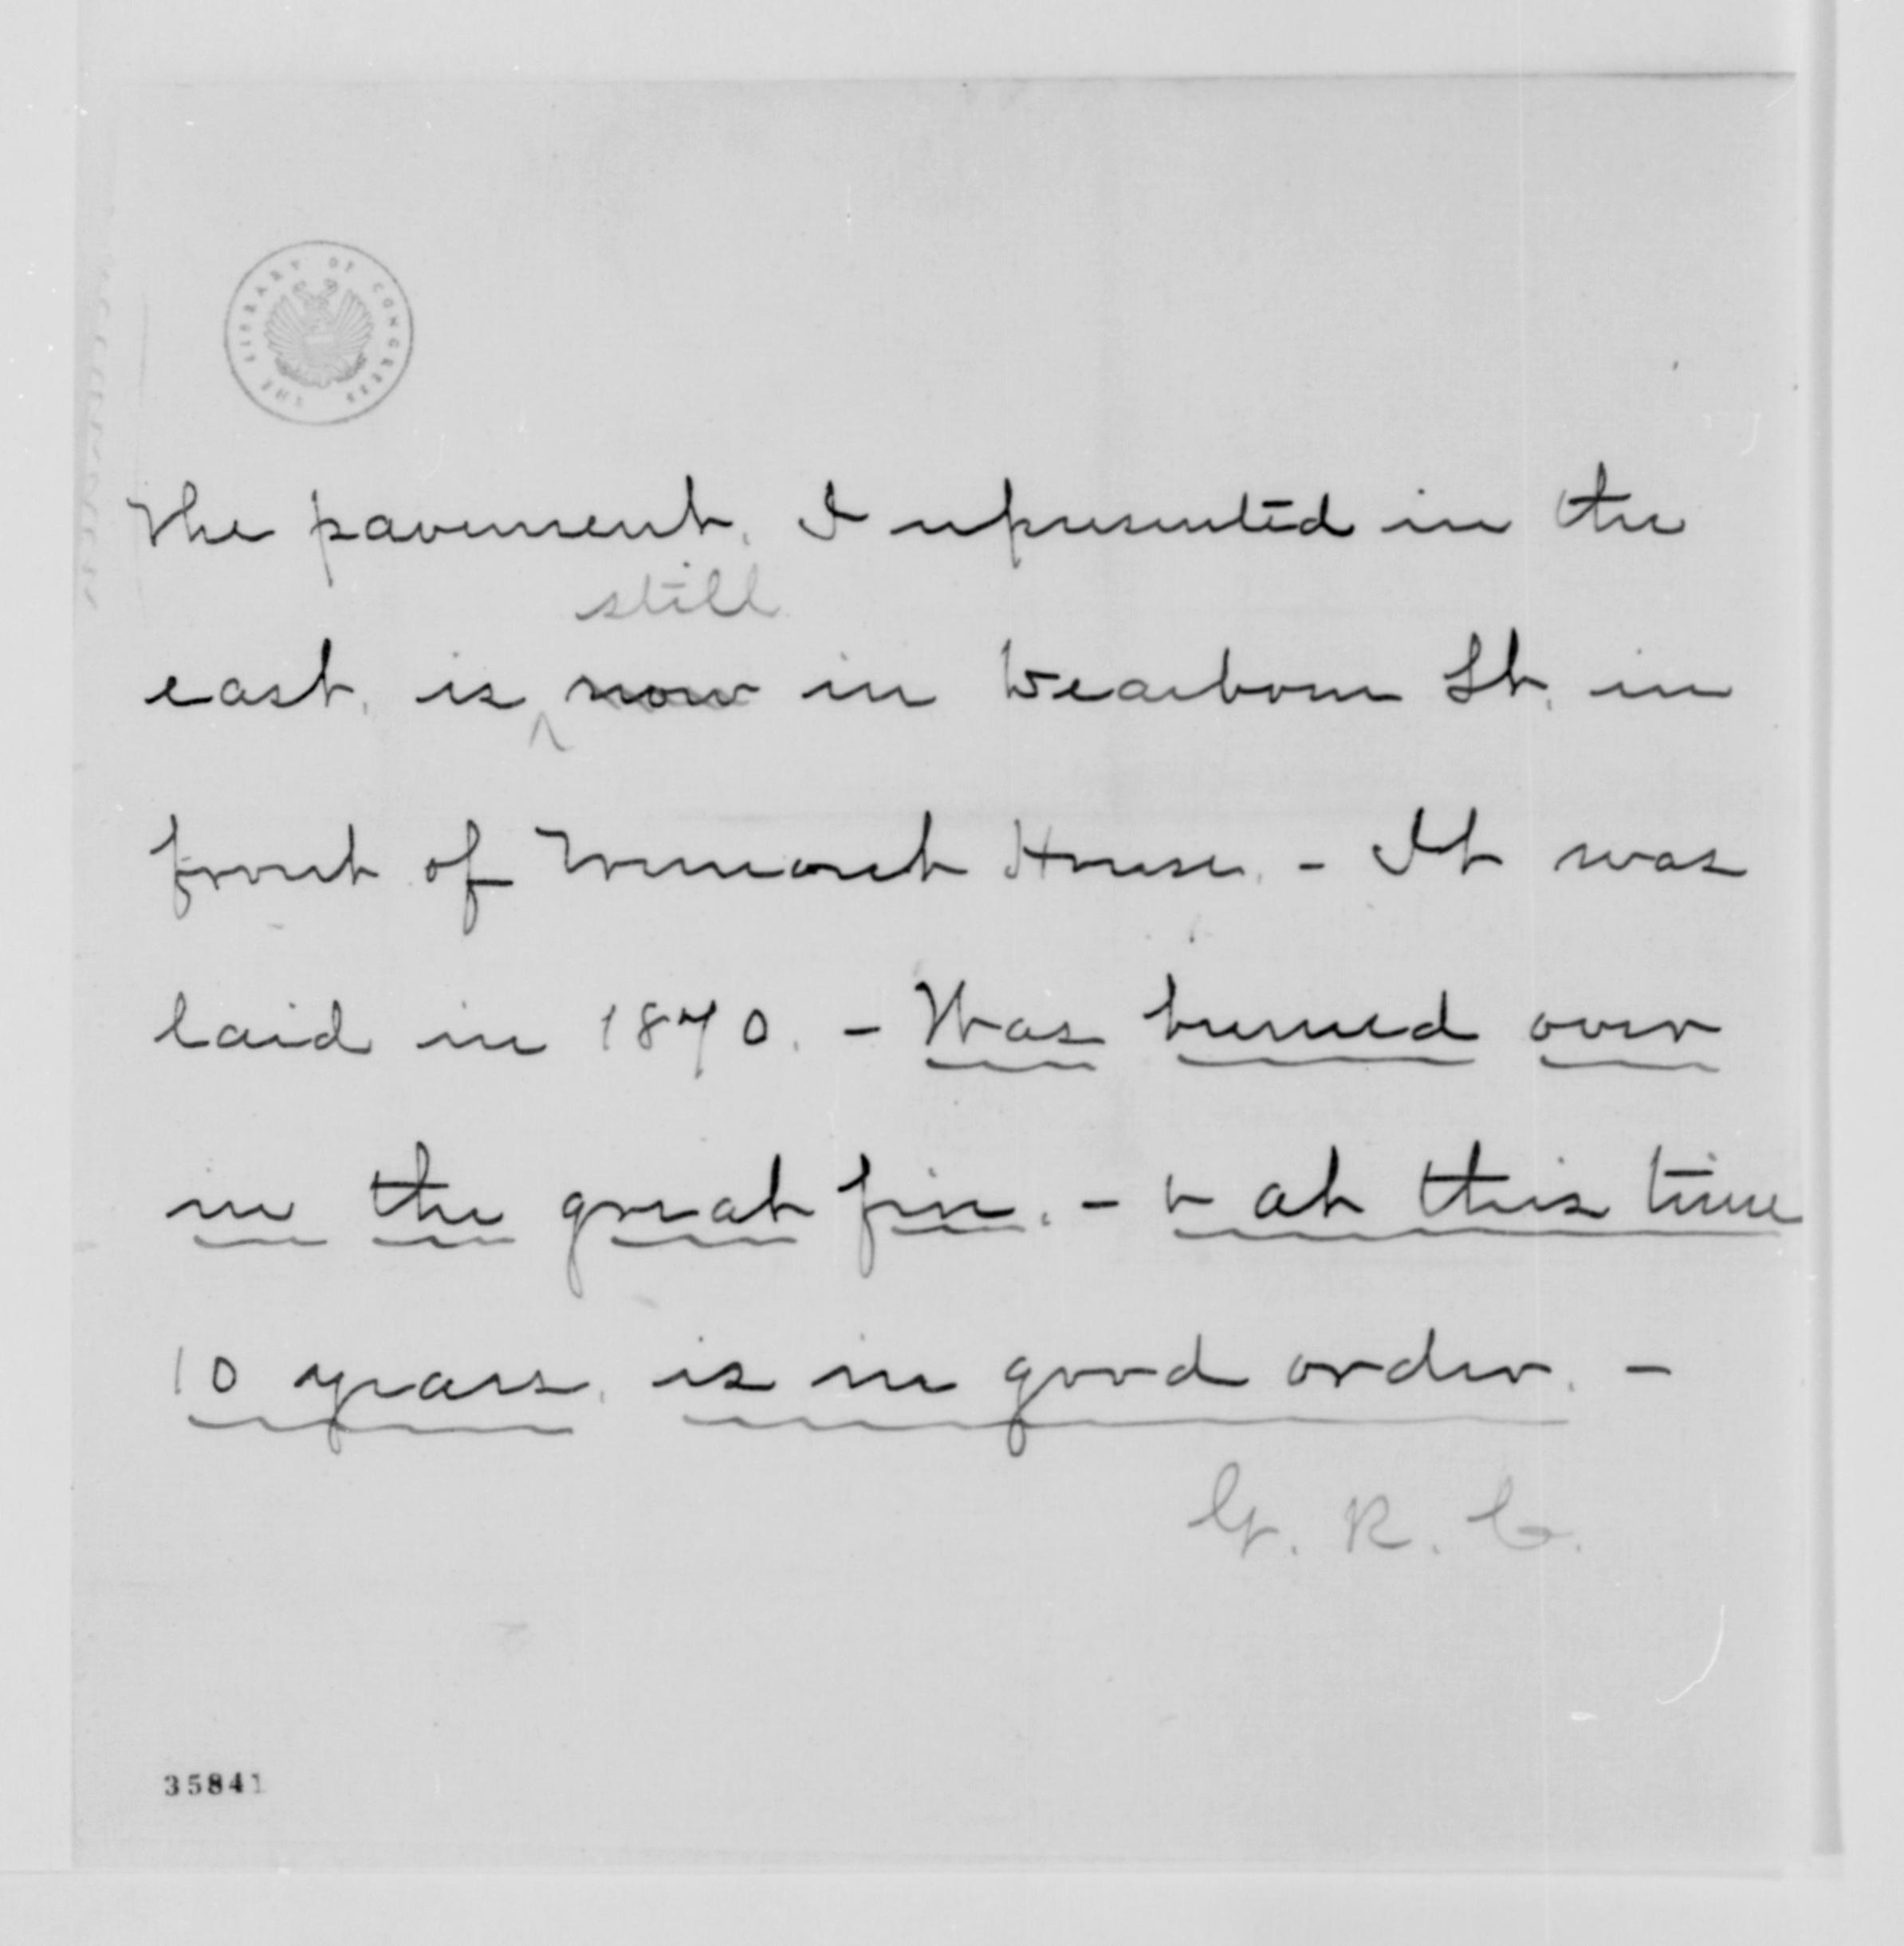 THE LIBRARY OF CONGRESS
The pavement, I represented in the
still
east, is now in Dearborn St. in
front of Tremont House. - It was
laid in 1870. - Was burned over
in the great fire. - & at this time
10 years, is in good order. -
G. R. C.
35841